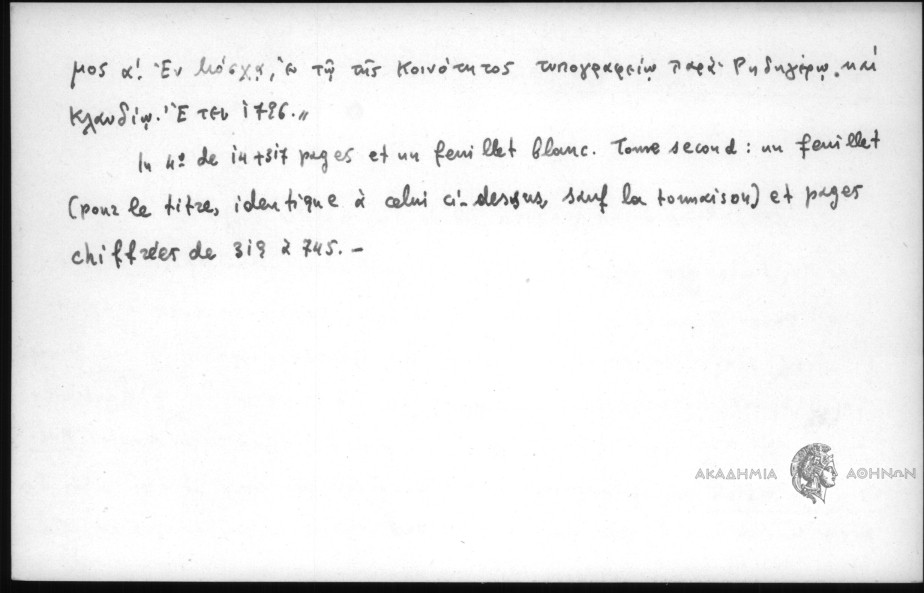 μος α΄. Ἐν Μόσχᾳ, Ἐν τῷ τῆς Κοινότητος τυπογραφείῳ παρὰ Ρηδηγέρῳ καὶ
Κλαυδίῳ. Ἔτει 1796."
In 4º de 14+317 pages et un feuillet blanc. Tome second: un feuillet
(pour le titre, identique à celui ci-dessus, sauf la tomaison) et pages
chiffrées de 319 à 745. —
ΑΚΑΔΗΜΙΑ ΑΘΗΝΩΝ